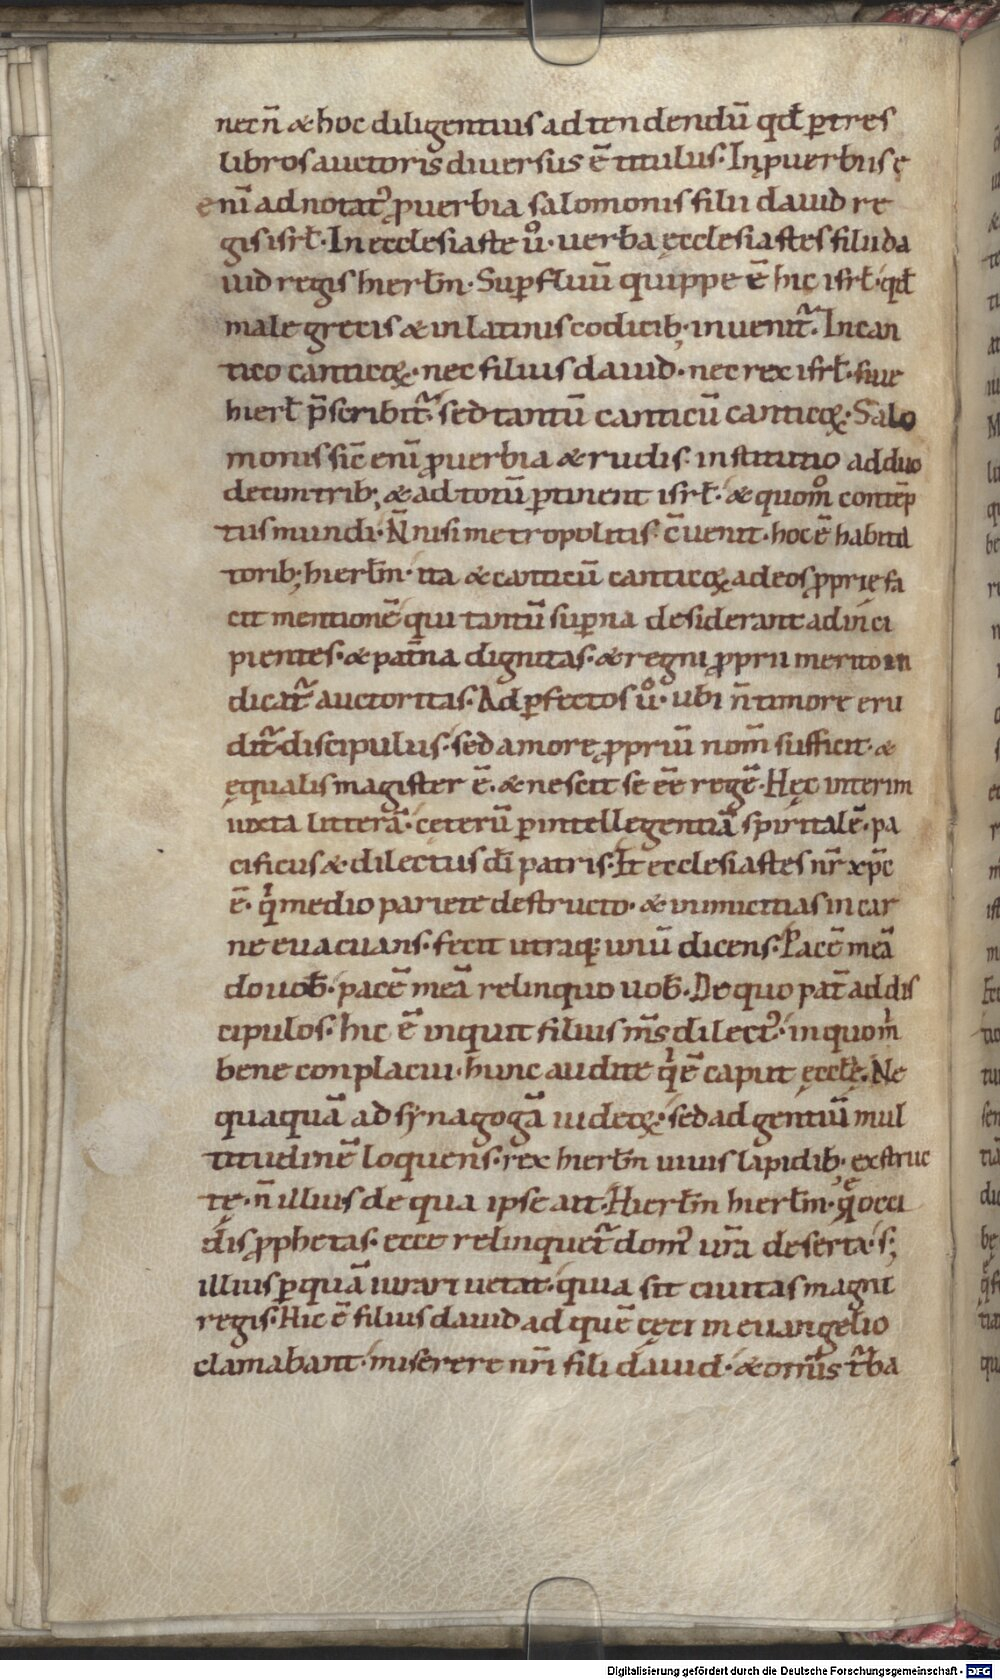 necn̄ & hoc diligentius adtendendū qđ ꝑ tres
libros auctoris diuersus ē titulus. In ꝓuerbiis ę
enī adnotat᷒ ꝓuerbia salomonis filii dauid re
gis isrł. In ecclesiaste ů. uerba ęcclesiastes filii da
uid regis hierłm. Suꝑfluū quippe ē hic isrł. qđ
male grecis & in latinis codicib; inuenit᷑. In can
tico canticoꝝ. nec filius dauid. nec rex isrł. siue
hierł p̄scribit᷑. sed tantū canticū canticoꝝ. Salo
monis sic̄ enī ꝓuerbia & rudis institutio ad duo
decim trib; & ad totū ꝑtinent isrł. & quom̊ contēp
tus mundi. N̄ nisi metropolitis c̄uenit. hoc ē habita
torib; hierłm. ita & canticū canticoꝝ ad eos ꝓprię fa
cit mentionē qui tantū suꝑna desiderant ad inci
pientes. & pat̄na dignitas. & regni ꝓprii merito in
dicat᷑ auctoritas. Ad ꝑfectos ů. ubi n̄ timore eru
dit᷑ discipulus. sed amore ꝓpriū nom̄ sufficit. &
ęqualis magister ē. & nescit se ēe regē. Hęc interim
iuxta litterā. ceterū ꝑ intellegentiā spiritalē. pa
cificus & dilectus dī patris. It ecclesiastes nr̄ xp̄c
ē. qi medio pariete destructo. & inimicitias in car
ne euacuans. fecit utraq; unū dicens. Pacē meā
do uob̄. pacē meā relinquo uob̄. De quo pat̄ ad dis
cipulos. hic ē inquit filius m̄s dilect᷒. in quo mi
bene conplacui. hunc audite qi ē caput ęccłę. Ne
quaquā ad synagogā iudeoꝝ. sed ad gentiū mul
titudinē loquens. rex hierłm uiuis lapidib; exstruc
tę. n̄ illius de qua ipse ait. Hierłm hierłm. quę occi
dis ꝓphetas. ecce relinquet᷑ dom᷒ ur̄a deserta. s;
illius ꝑ quā iurari uetat. quia sit ciuitas magni
regis. Hic ē filius dauid ad quē cęci in euangelio
clamabant. miserere nr̄i fili dauid. & omīs t᷑ba